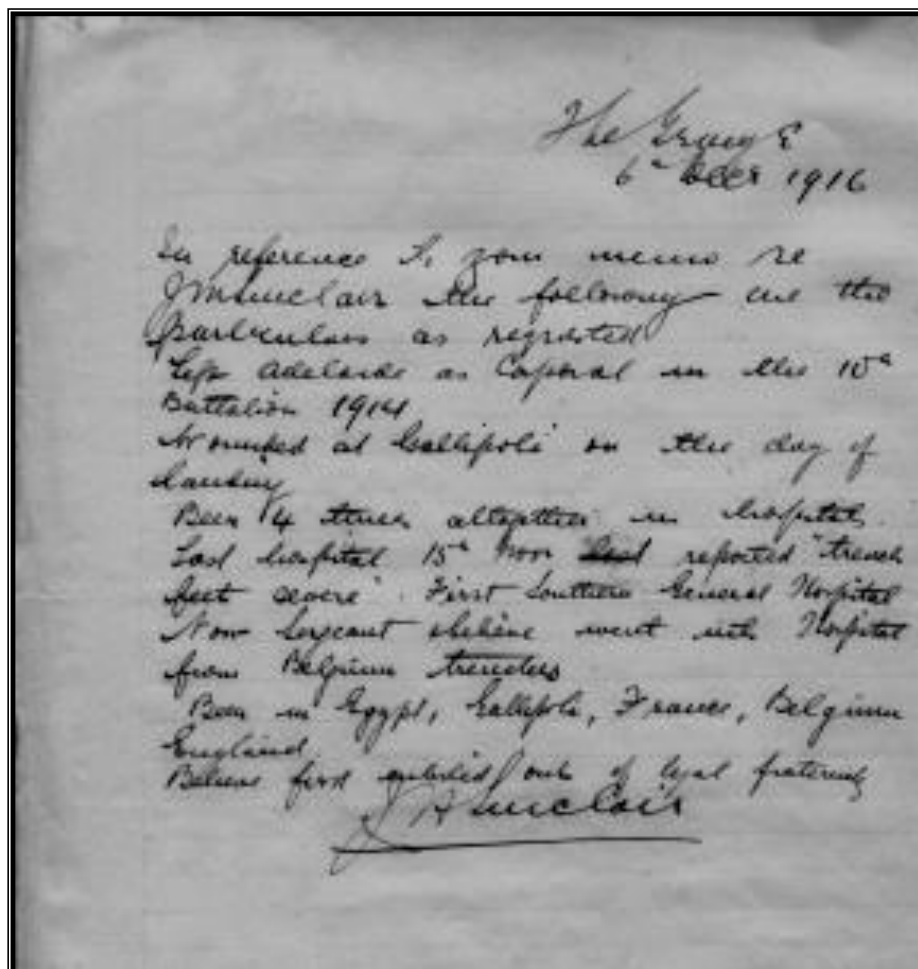 The Grange
6th Decr 1916
In reference to your memo re
J M Sinclair the following are the
particulars as requested
Left Adelaide as Coporal in the 10th
Battalion 1914
Wounded at Gallipoli on the day of
landing
Been 4 times altogether in hospital
Last hospital 15th Nov reported "trench
feet severe" First Southern General Hospital
Now Sergeant believe went into Hospital
from Belgium trenches
Been in Egypt, Gallipoli, France, Belgium
England
Believe first enlisted out of legal fraternity
J H Sinclair